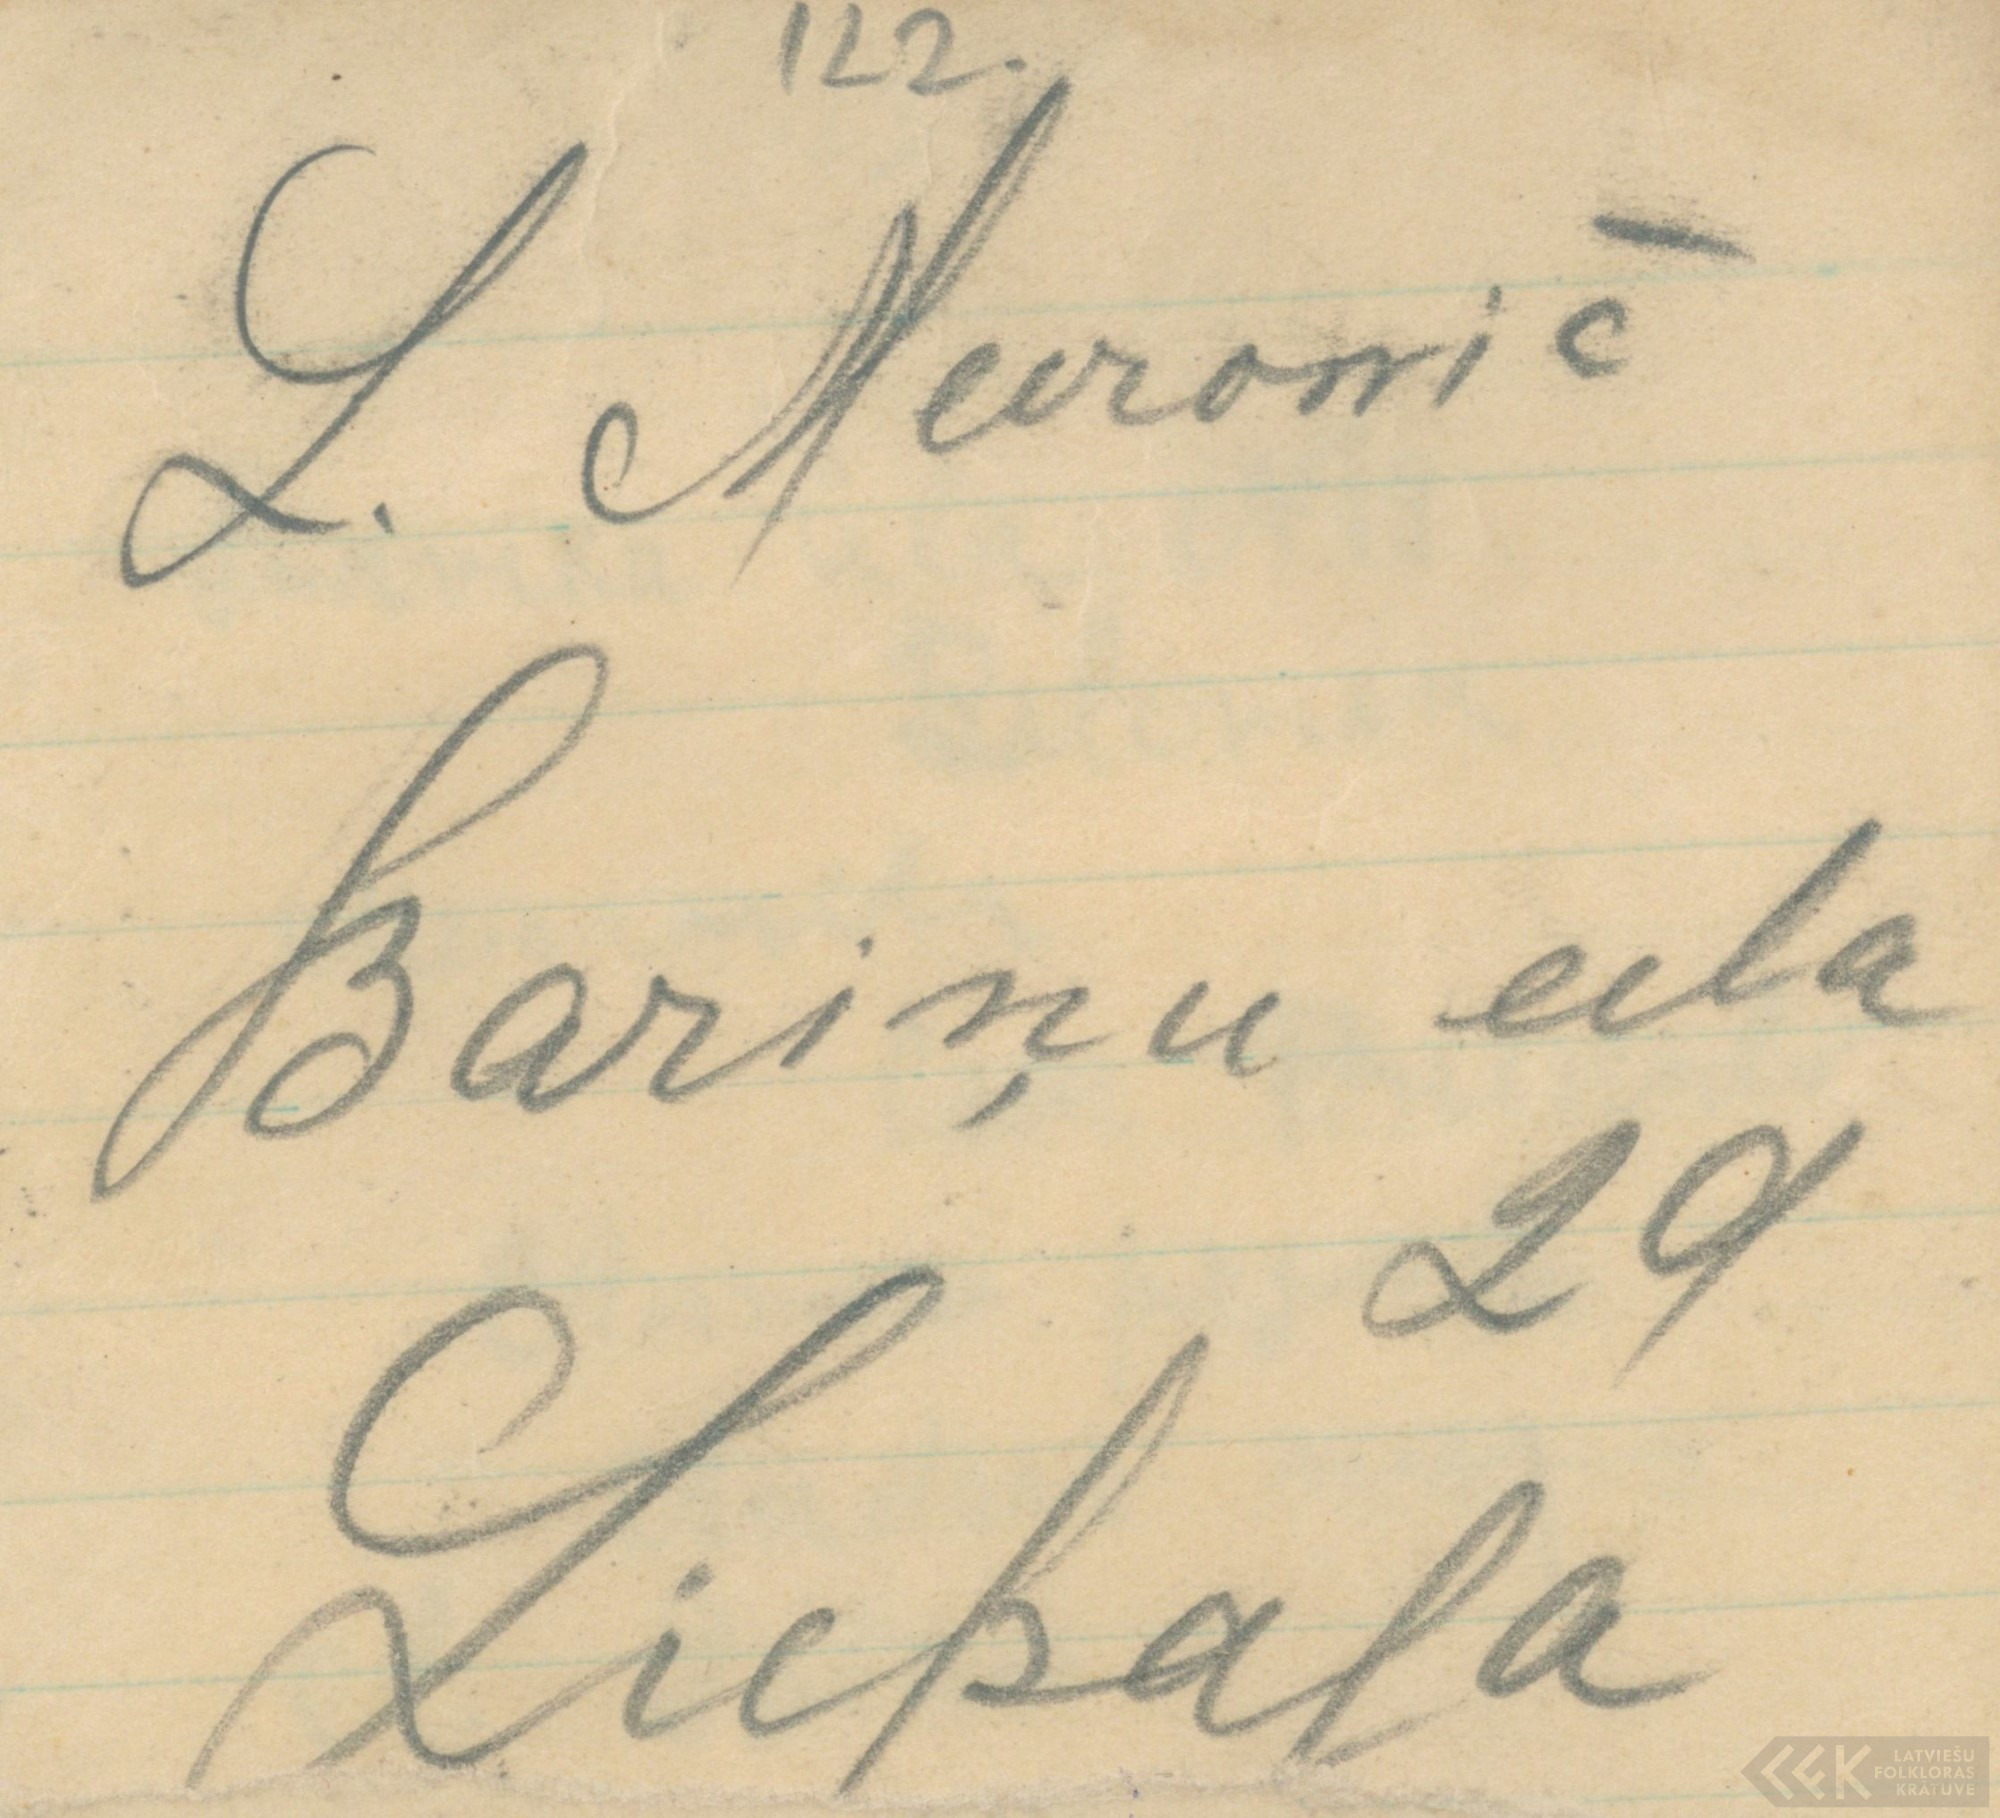 122.
L. Meironič
Bariņu iela
29
Liepaja
LATVIEŠU
FOLKLORAS
KRĀTUVE